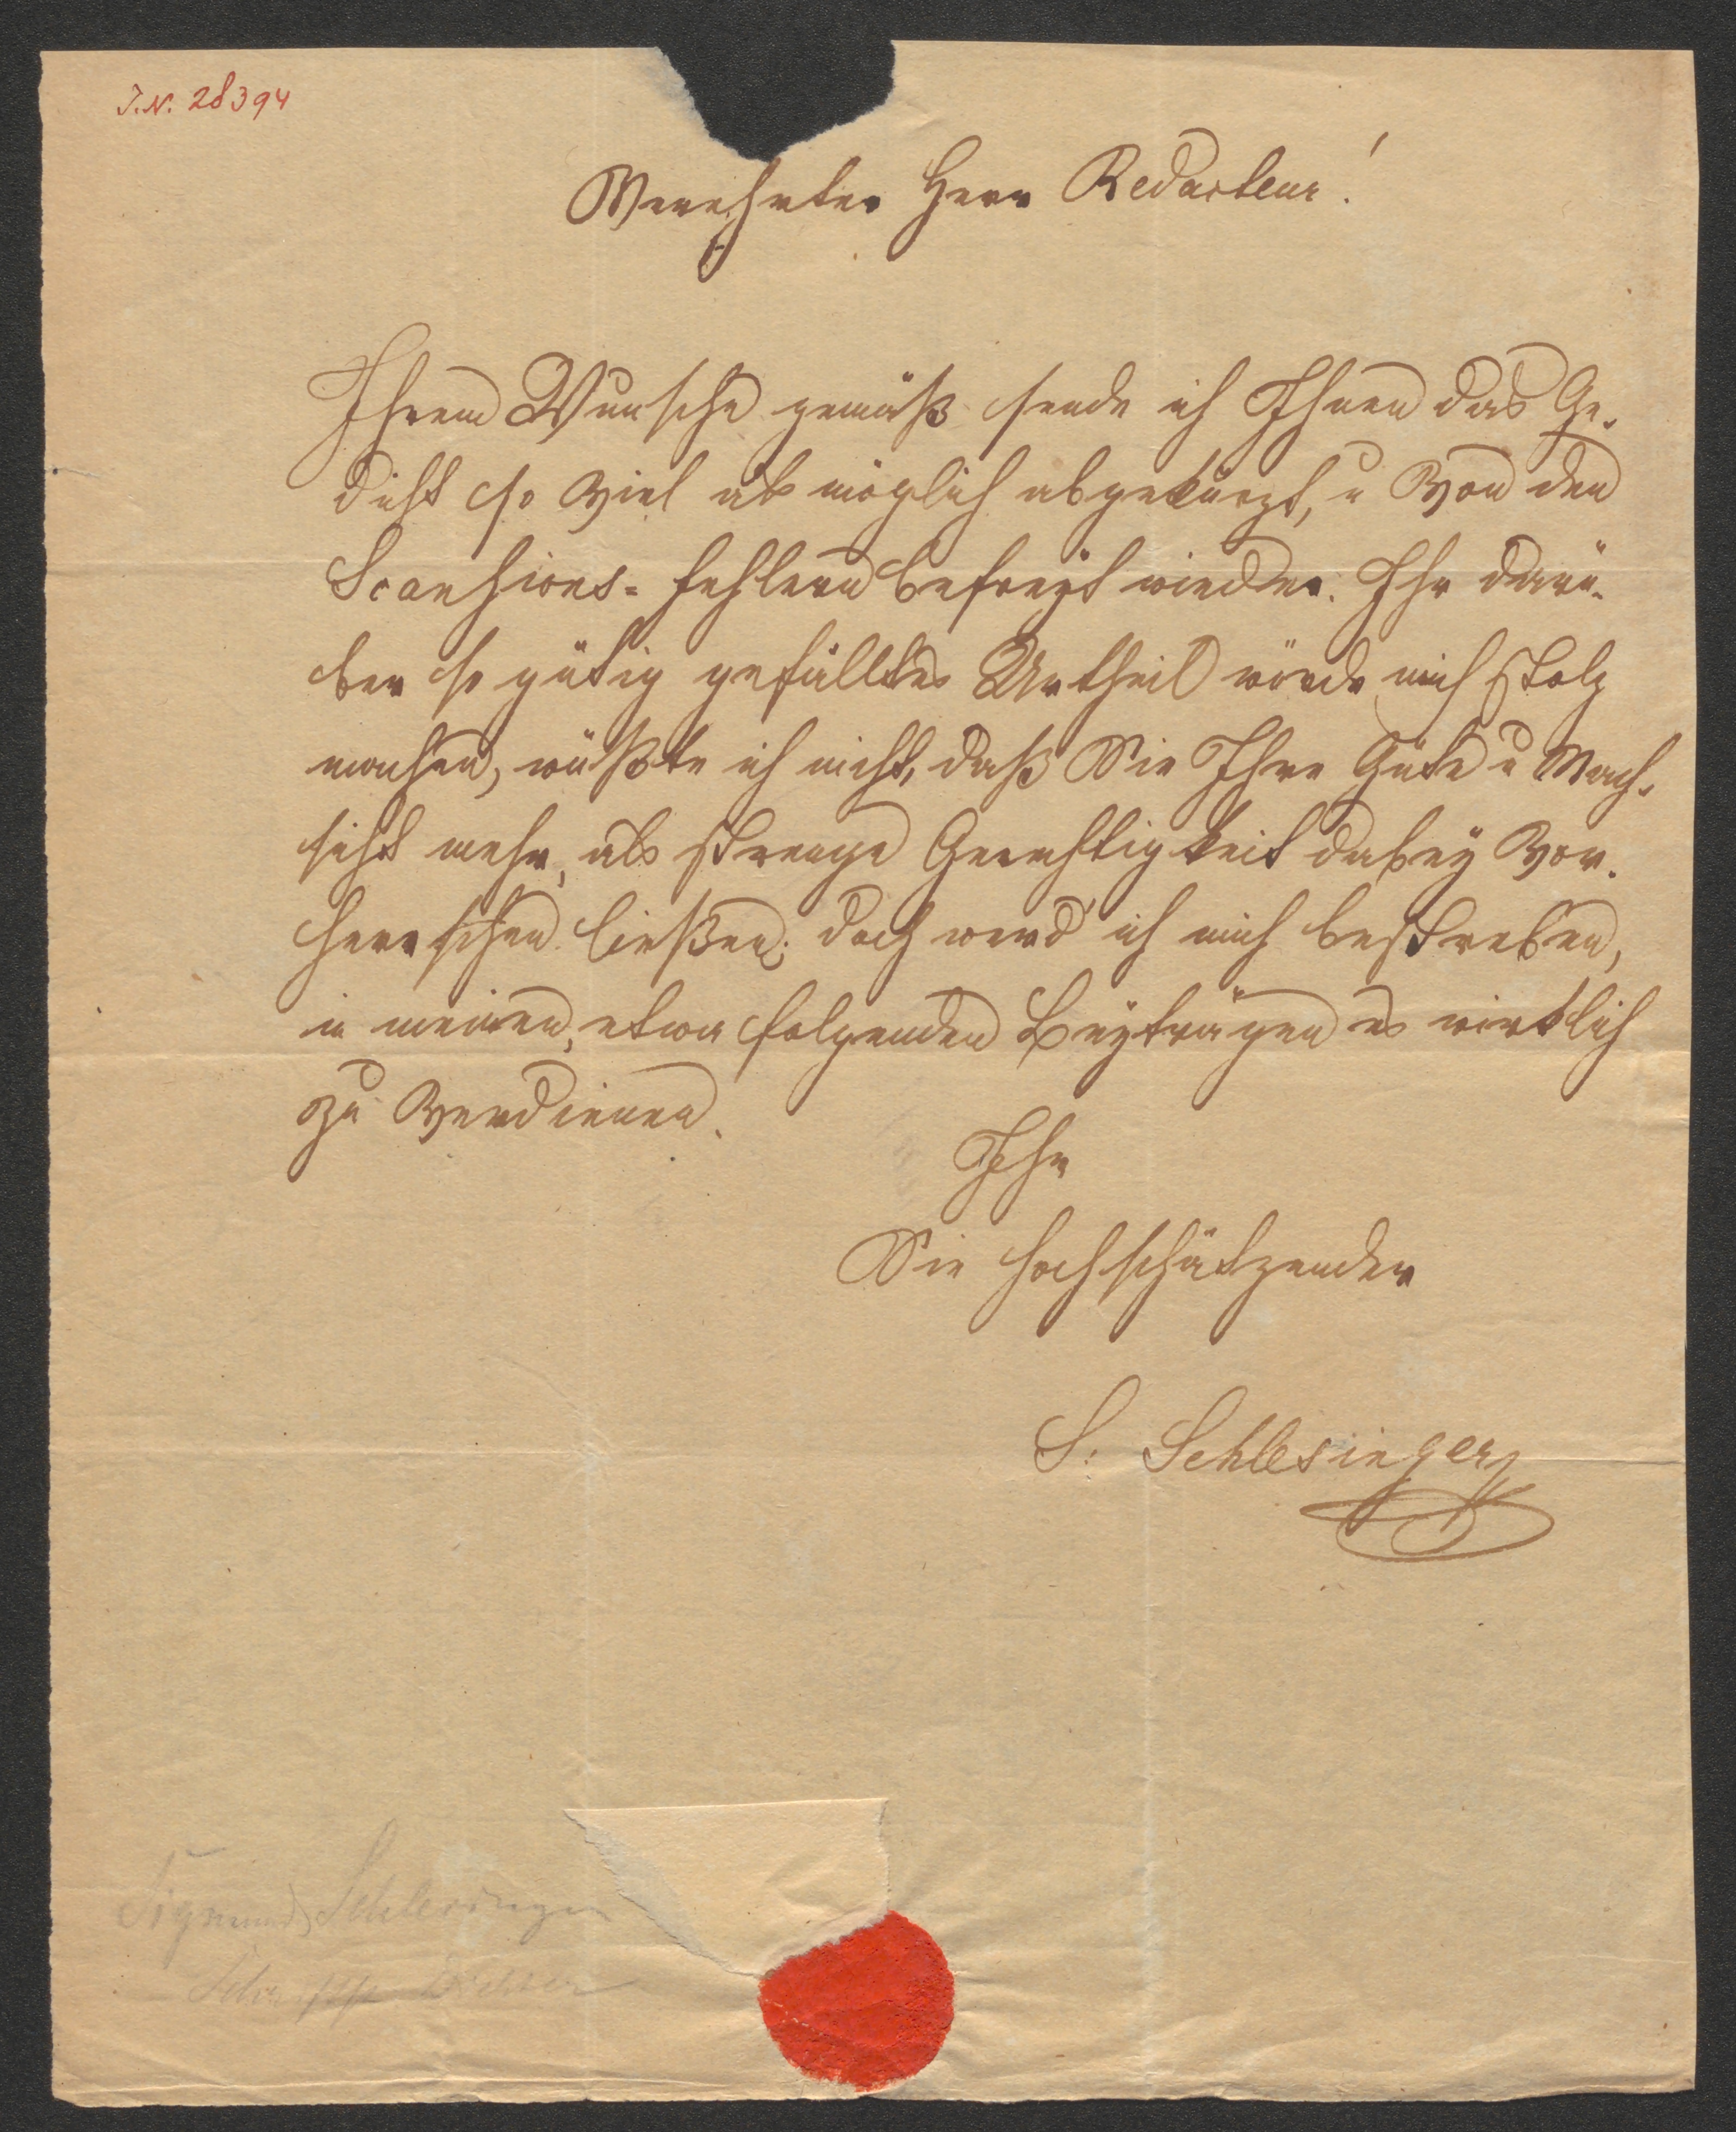 J.N. 28394
Verehrter Herr Redacteur!
Ihrem Wunsche gemäß sende ich Ihnen das Ge-
dicht so viel als möglich abgekürzt, u von den
Scansions-fehlern befreyt wieder. Ihr darü-
ber so gütig gefälltes Urtheil würde mich stolz
machen, wüßte ich nicht, daß Sie Ihre Güte u Nach-
sicht mehr, als strenge Gerechtigkeit dabey vor-
herrschen ließen; doch werd' ich mich bestreben,
in meinen, etwa folgenden Beyträgen es wirklich
zu verdienen.
Ihr
Sie hochschätzender
S. Schlesinger
Sigmund Schlesinger